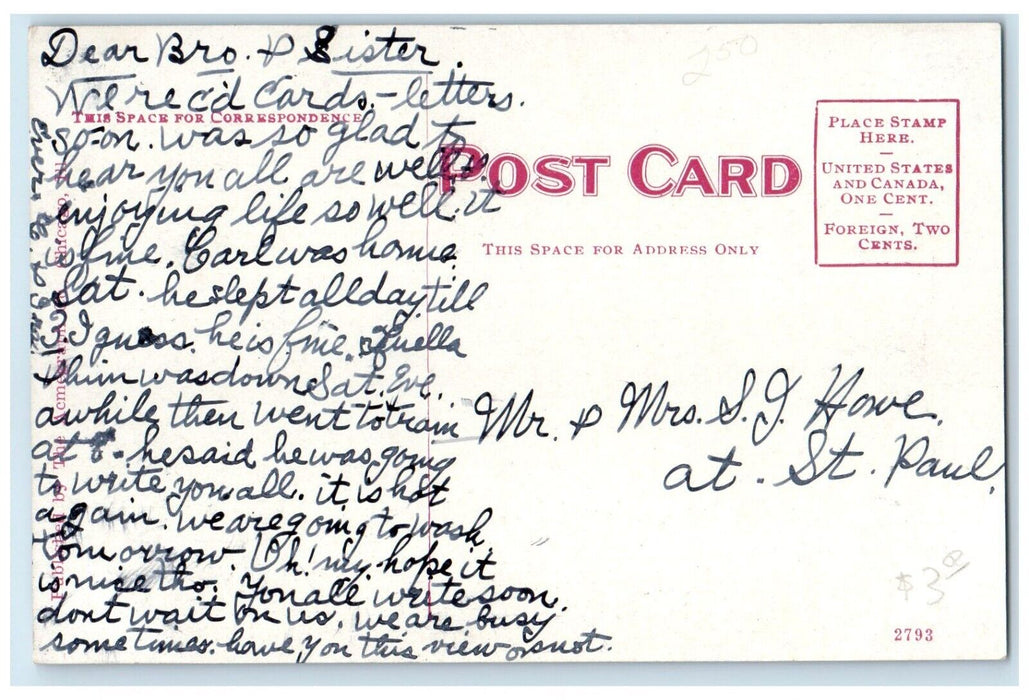 Dear Bro. & Sister.
We rec'd Cards.-letters.
THIS SPACE FOR CORRESPONDENCE
so-on. was so glad to
hear you all are well &
enjoying life so well. it
is fine. Carl was home
Sat. he slept all day till
3. I guess. he is fine. Luella
& him was down Sat. Eve.
awhile then went to train
at 8. he said he was going
to write you all. it is hot
again. we are going to wash
tomorrow. Oh! my. hope it
is nice tho. You all write soon.
dont wait on us. we are busy
sometimes. have you this view or not.
POST CARD
THIS SPACE FOR ADDRESS ONLY
PLACE STAMP
HERE.
UNITED STATES
AND CANADA,
ONE CENT.
FOREIGN, TWO
CENTS.
Mr. & Mrs. S. J. Howe.
at. St. Paul.
250
$3.00
2793
Published by The Acmegraph Co. Chicago